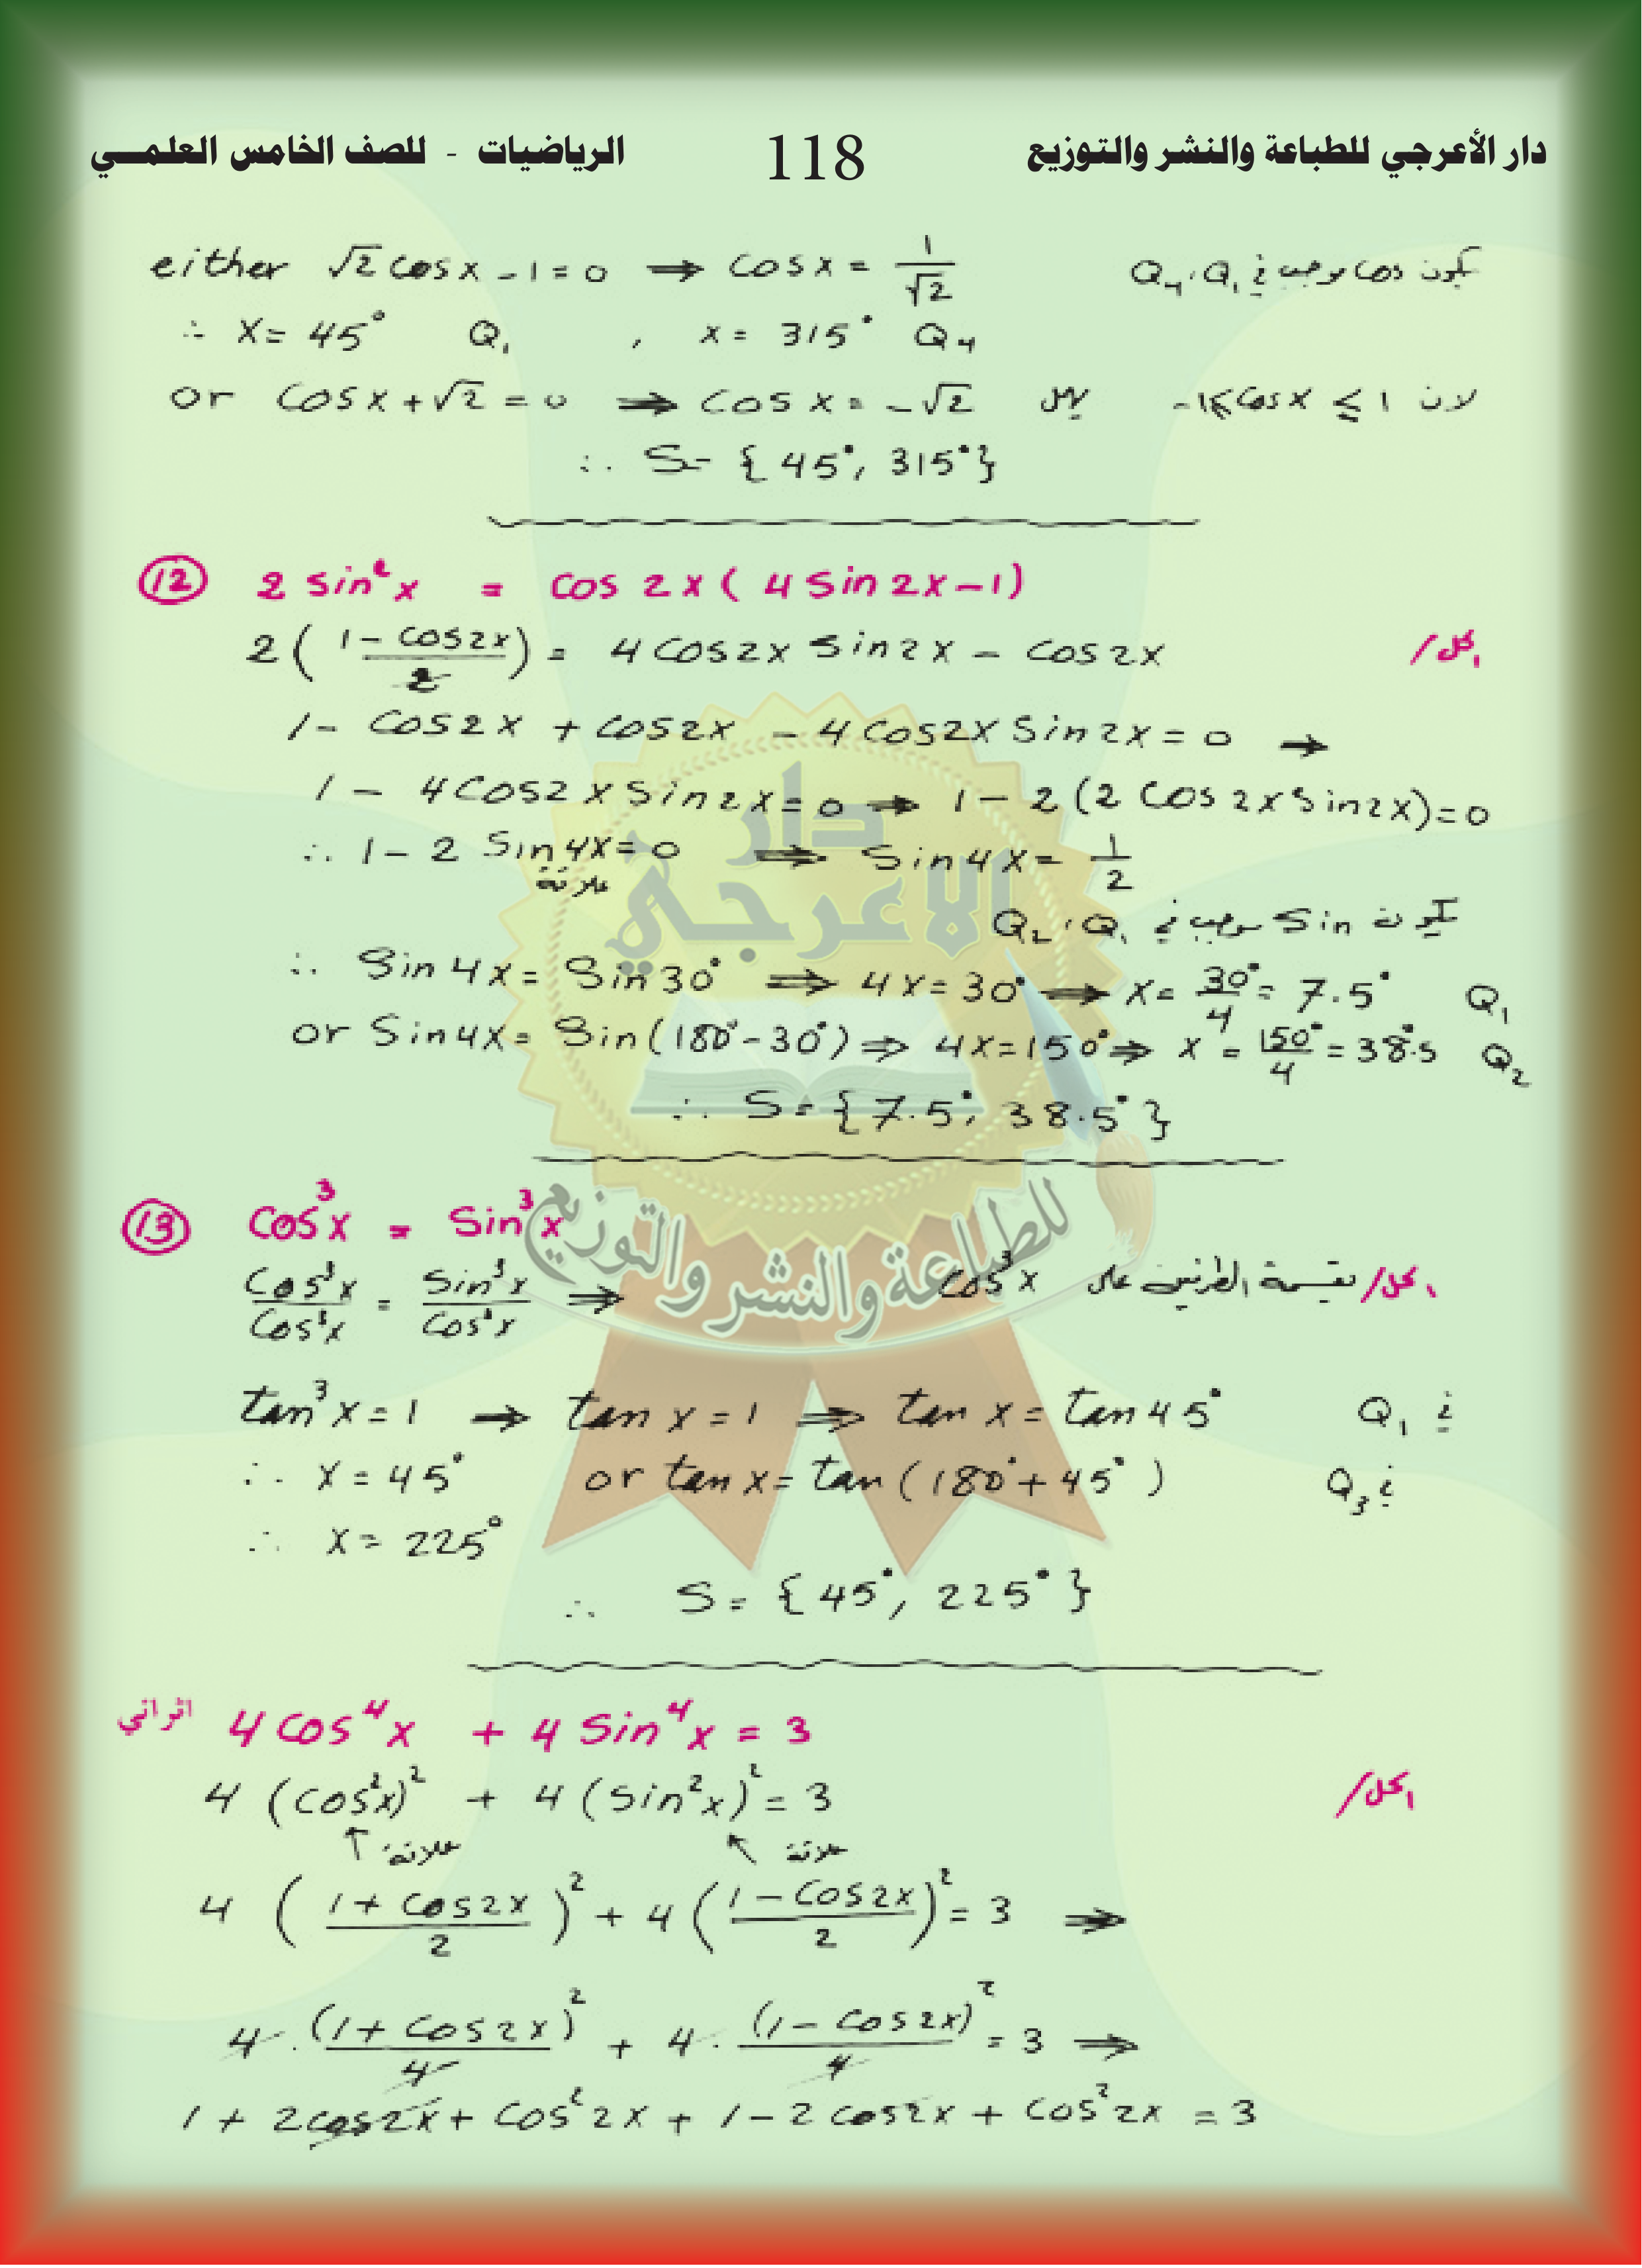 دار الأعرجي للطباعة والنشر والتوزيع 118 الرياضيات - للصف الخامس العلمـــي
either √2 cosx - 1 = 0 ⇒ cosx = 1/√2 يكون cos موجب في Q₁ ، Q₄
∴ x = 45° Q₁ , x = 315° Q₄
or cosx + √2 = 0 ⇒ cosx = -√2 يهمل لان 1 ≥ cosx ≥ 1-
∴ S = {45°, 315°}
⑫ 2 sin²x = cos 2x (4 sin 2x - 1)
2((1 - cos2x)/2) = 4 cos2x sin2x - cos2x الحل/
1 - cos2x + cos2x - 4 cos2x sin2x = 0 ⇒
1 - 4 cos2x sin2x = 0 ⇒ 1 - 2(2 cos2x sin2x) = 0
∴ 1 - 2 sin4x = 0 ⇒ sin4x = 1/2
علاقة
يكون sin موجب في Q₁ ، Q₂
∴ sin4x = sin30° ⇒ 4x = 30° ⇒ x = 30°/4 = 7.5° Q₁
or sin4x = sin(180° - 30°) ⇒ 4x = 150° ⇒ x = 150°/4 = 38.5° Q₂
∴ S = {7.5°, 38.5°}
⑬ cos³x = sin³x
cos³x/cos³x = sin³x/cos³x ⇒ الحل/ بقسمة الطرفين على cos³x
tan³x = 1 ⇒ tan x = 1 ⇒ tan x = tan 45° في Q₁
∴ x = 45° or tan x = tan(180° + 45°) في Q₃
∴ x = 225°
∴ S = {45°, 225°}
اثرائي 4 cos⁴x + 4 sin⁴x = 3
4(cos²x)² + 4(sin²x)² = 3 الحل/
↑ علاقة ↖ علاقة
4((1 + cos2x)/2)² + 4((1 - cos2x)/2)² = 3 ⇒
4 · (1 + cos2x)²/4 + 4 · (1 - cos2x)²/4 = 3 ⇒
1 + 2cos2x + cos²2x + 1 - 2cos2x + cos²2x = 3
دار
الاعرجي
للطباعة والنشر والتوزيع